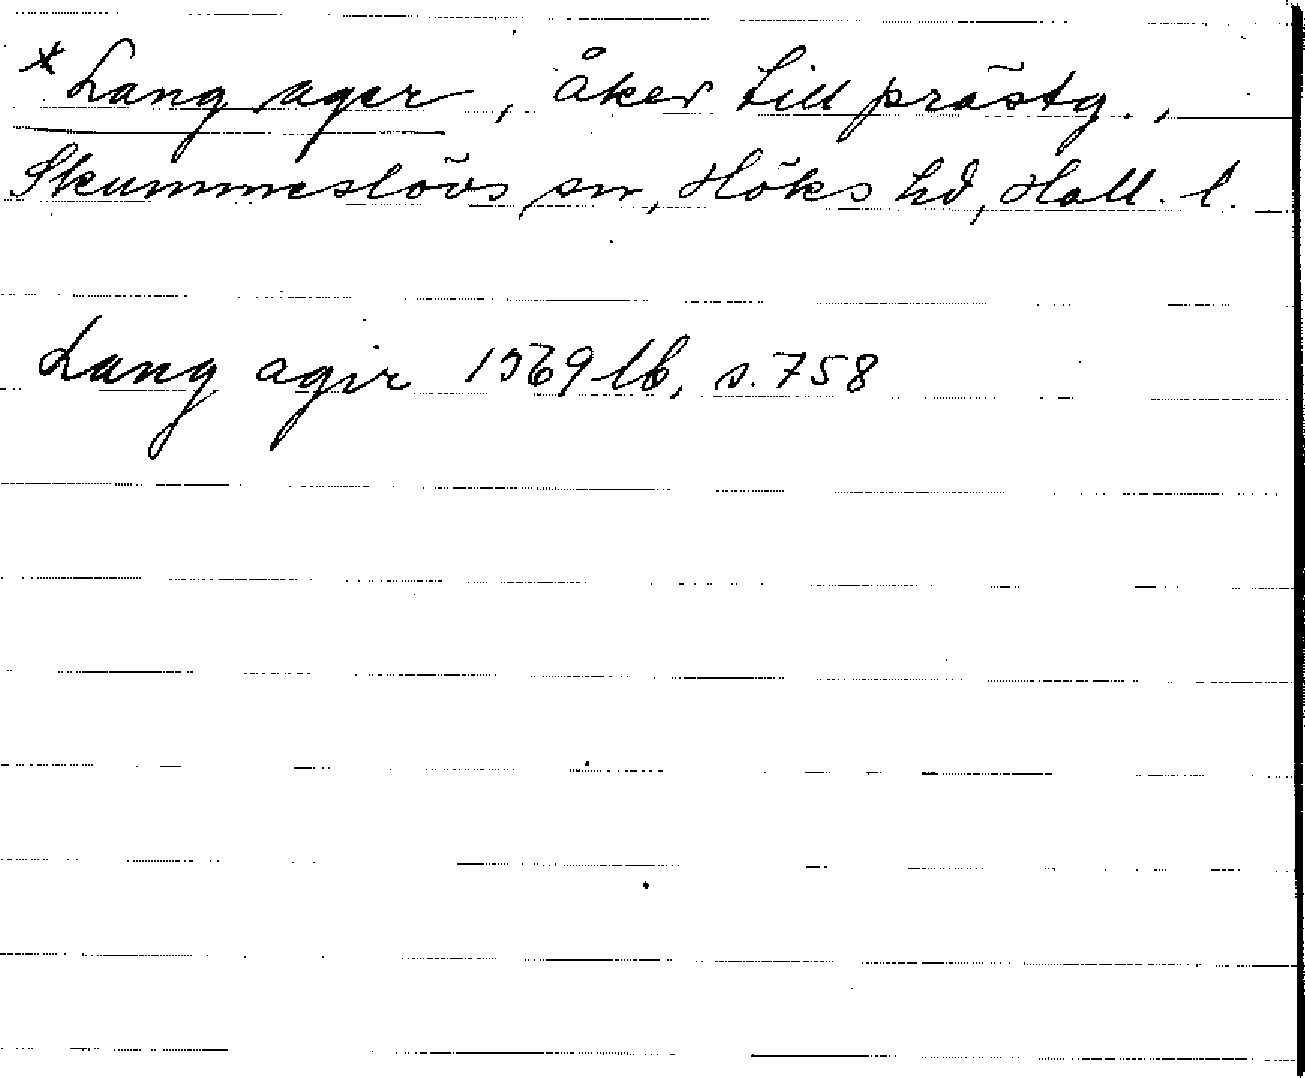 * Lang ager, åker till prästg.,
Skummeslövs sn, Höks hd, Hall. l.
Lang agir 1569 lb, s. 758